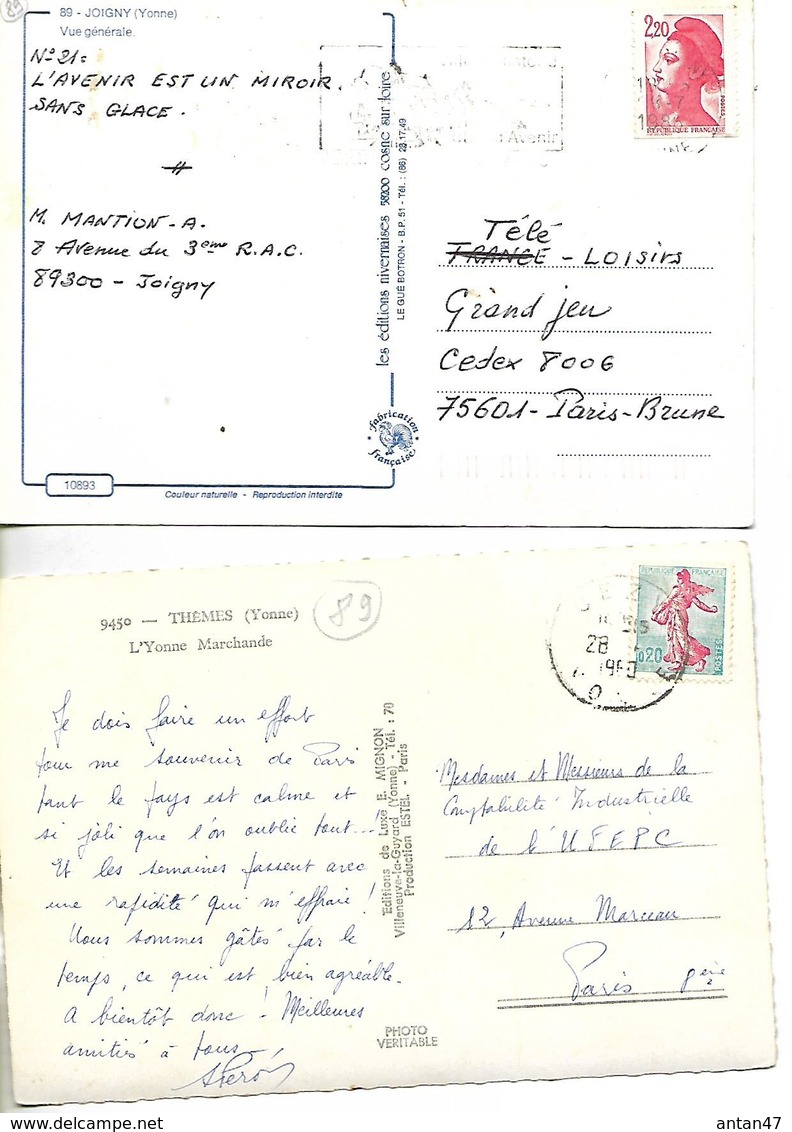 89
89 - JOIGNY (Yonne)
Vue générale.
N° 21:
L'AVENIR EST UN MIROIR.
SANS GLACE.
M. MANTION-A.
8 Avenue du 3eme R.A.C.
89300 - Joigny
les éditions nivernaises 58200 cosne sur loire
LE GUÉ BOTRON - B.P. 51 - Tél. : (86) 28.17.49
Avenir
2,20
REPUBLIQUE FRANÇAISE
1986
Télé
FRANCE - LOISIRS
Grand jeu
Cedex 8006
75601 - Paris-Brune
Fabrication française
10893
Couleur naturelle - Reproduction interdite
9450 — THÈMES (Yonne)
L'Yonne Marchande
89
REPUBLIQUE FRANÇAISE
0,20
POSTES
28
Je dois faire un effort
pour me souvenir de Paris
tant le pays est calme et
si joli que l'on oublie tout...!
Et les semaines passent avec
une rapidité qui m'effraie!
Nous sommes gâtés par le
temps, ce qui est bien agréable.
A bientôt donc! Meilleures
amitiés à tous
Editions de Luxe E. MIGNON
Villeneuve-la-Guyard (Yonne) - Tél. : 70
Production ESTEL - Paris
PHOTO
VERITABLE
Mesdames et Messieurs de la
Comptabilité Industrielle
de l'UFEPC
12, Avenue Marceau
Paris
antan47